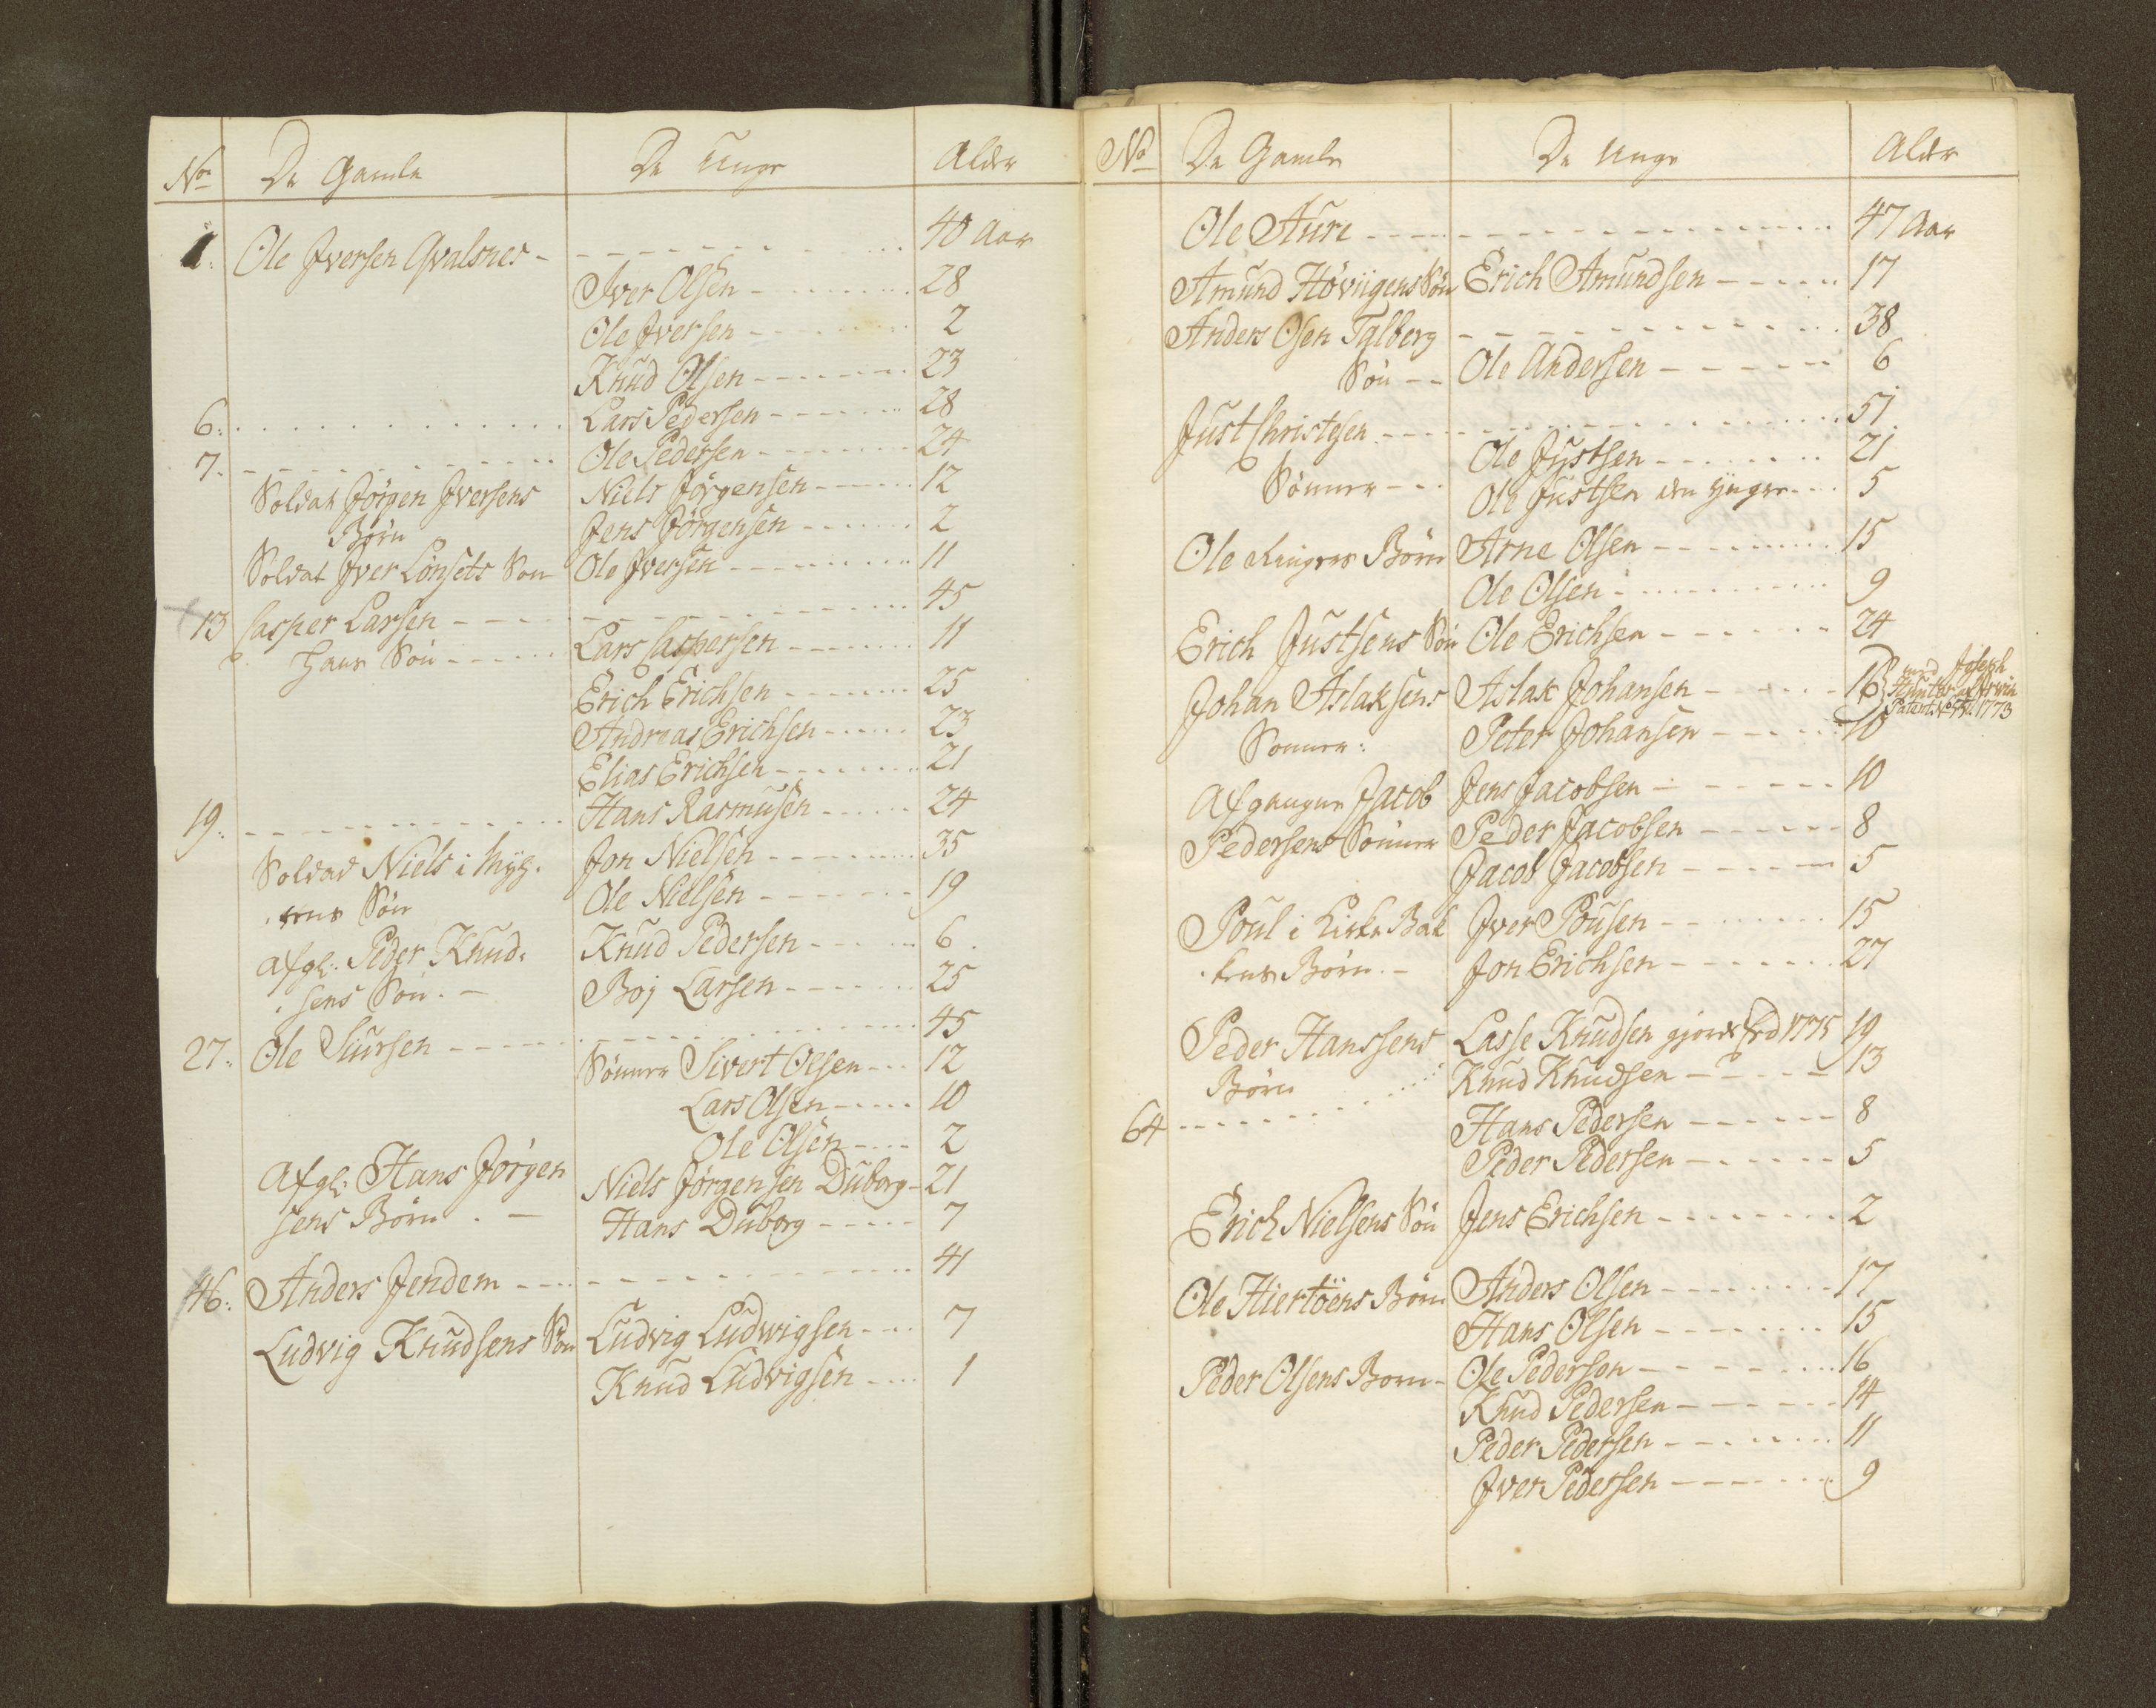 No De Gamle De Unge Alder
1. Ole Jversen Qvalsnes - - - - - - - 40 Aar
Iver Olsen - - - - - 28
Ole Jversen - - - - - 2
Knud Olsen - - - - - 23
6. . . . . . . Lars Pedersen - - - - - 28
7. - - - - - - Ole Pedersen - - - - - 24
Soldat Jörgen Jversens Niels Jörgensen - - - - 12
Börn Jens Jörgensen - - - - 2
Soldat Jver Lönsets Son Ole Jversen - - - - - 11
13 Casper Larsen - - - - - - - - - 45
Hans Sön - - - - Lars Caspersen - - - - 11
Erich Erichsen - - - - 25
Andreas Erichsen - - - - 23
Elias Erichsen - - - - 21
19. - - - - - - Hans Rasmusen - - - - 24
Soldat Niels i Jon Nielsen - - - - 35
Sön Ole Nielsen - - - - 19
Afgl: Peder Knud: Knud Pedersen - - - - 6.
: sens Sön. - Boj Larsen - - - - 25
27. Ole Siursen - - - - - - - - - 45
Sönner Sivert Olsen - - - 12
Lars Olsen - - - - 10
Ole Olsen - - - - 2
Afgl: Hans Jörgen Niels Jörgensen Duborg - 21
sens Börn . - Hans Duborg - - - - 7
46. Anders Jendem - - - - - - - - - 41
Ludvig Knudsens Sön Ludvig Ludwigsen - - - 7
Knud Ludvigsen - - - 1
No De Gamle De Unge Alder
Ole Aure - - - - - - - - - - 47 Aar
Amund Höviigens Sön Erich Amundsen - - - - 17
Anders Osen Talberg - - - - - - - - 38
Sön - - Ole Andersen - - - - - 6
Just Christesen - - - - - - - - - 51.
Ole Justsen - - - - - 21
Sönner - - Ole Justsen den yngre - - 5
Ole Krigers Börn Arne Olsen - - - - - 15
Ole Olsen - - - - - 9
Erich Justsens Sön Ole Erichsen - - - - - 24
Johan Aslaksens Aslak Johansen - - - - 16 Joseph
Patent 1773
Sönner: Peter Johansen - - - - 10
Afgangne Jacob Jens Jacobsen - - - - - 10
Pedersens Sönner Peder Jacobsen - - - - - 8
Jacob Jacobsen - - - - - 5
Poul i Kirke Bak Jver Pousen - - - - - 15
: kens Börn. - Jon Erichsen - - - - - 27
Peder Hanssens Lasse Knudsen gjorde Eed 1775 19
Börn Knud Knudsen - - - - 13
64 - - - - - - Hans Pedersen - - - - - 8
Peder Pedersen - - - - - 5
Erich Nielsens Sön Jens Erichsen - - - - - 2
Ole Hiertöens Börn Anders Olsen - - - - - 17
Hans Olsen - - - - - 15
Peder Olsens Born - Ole Pedersen - - - - - 16
Knud Pedersen - - - - - 14
Peder Pedersen - - - - - 11
Jver Pedersen - - - - - 9